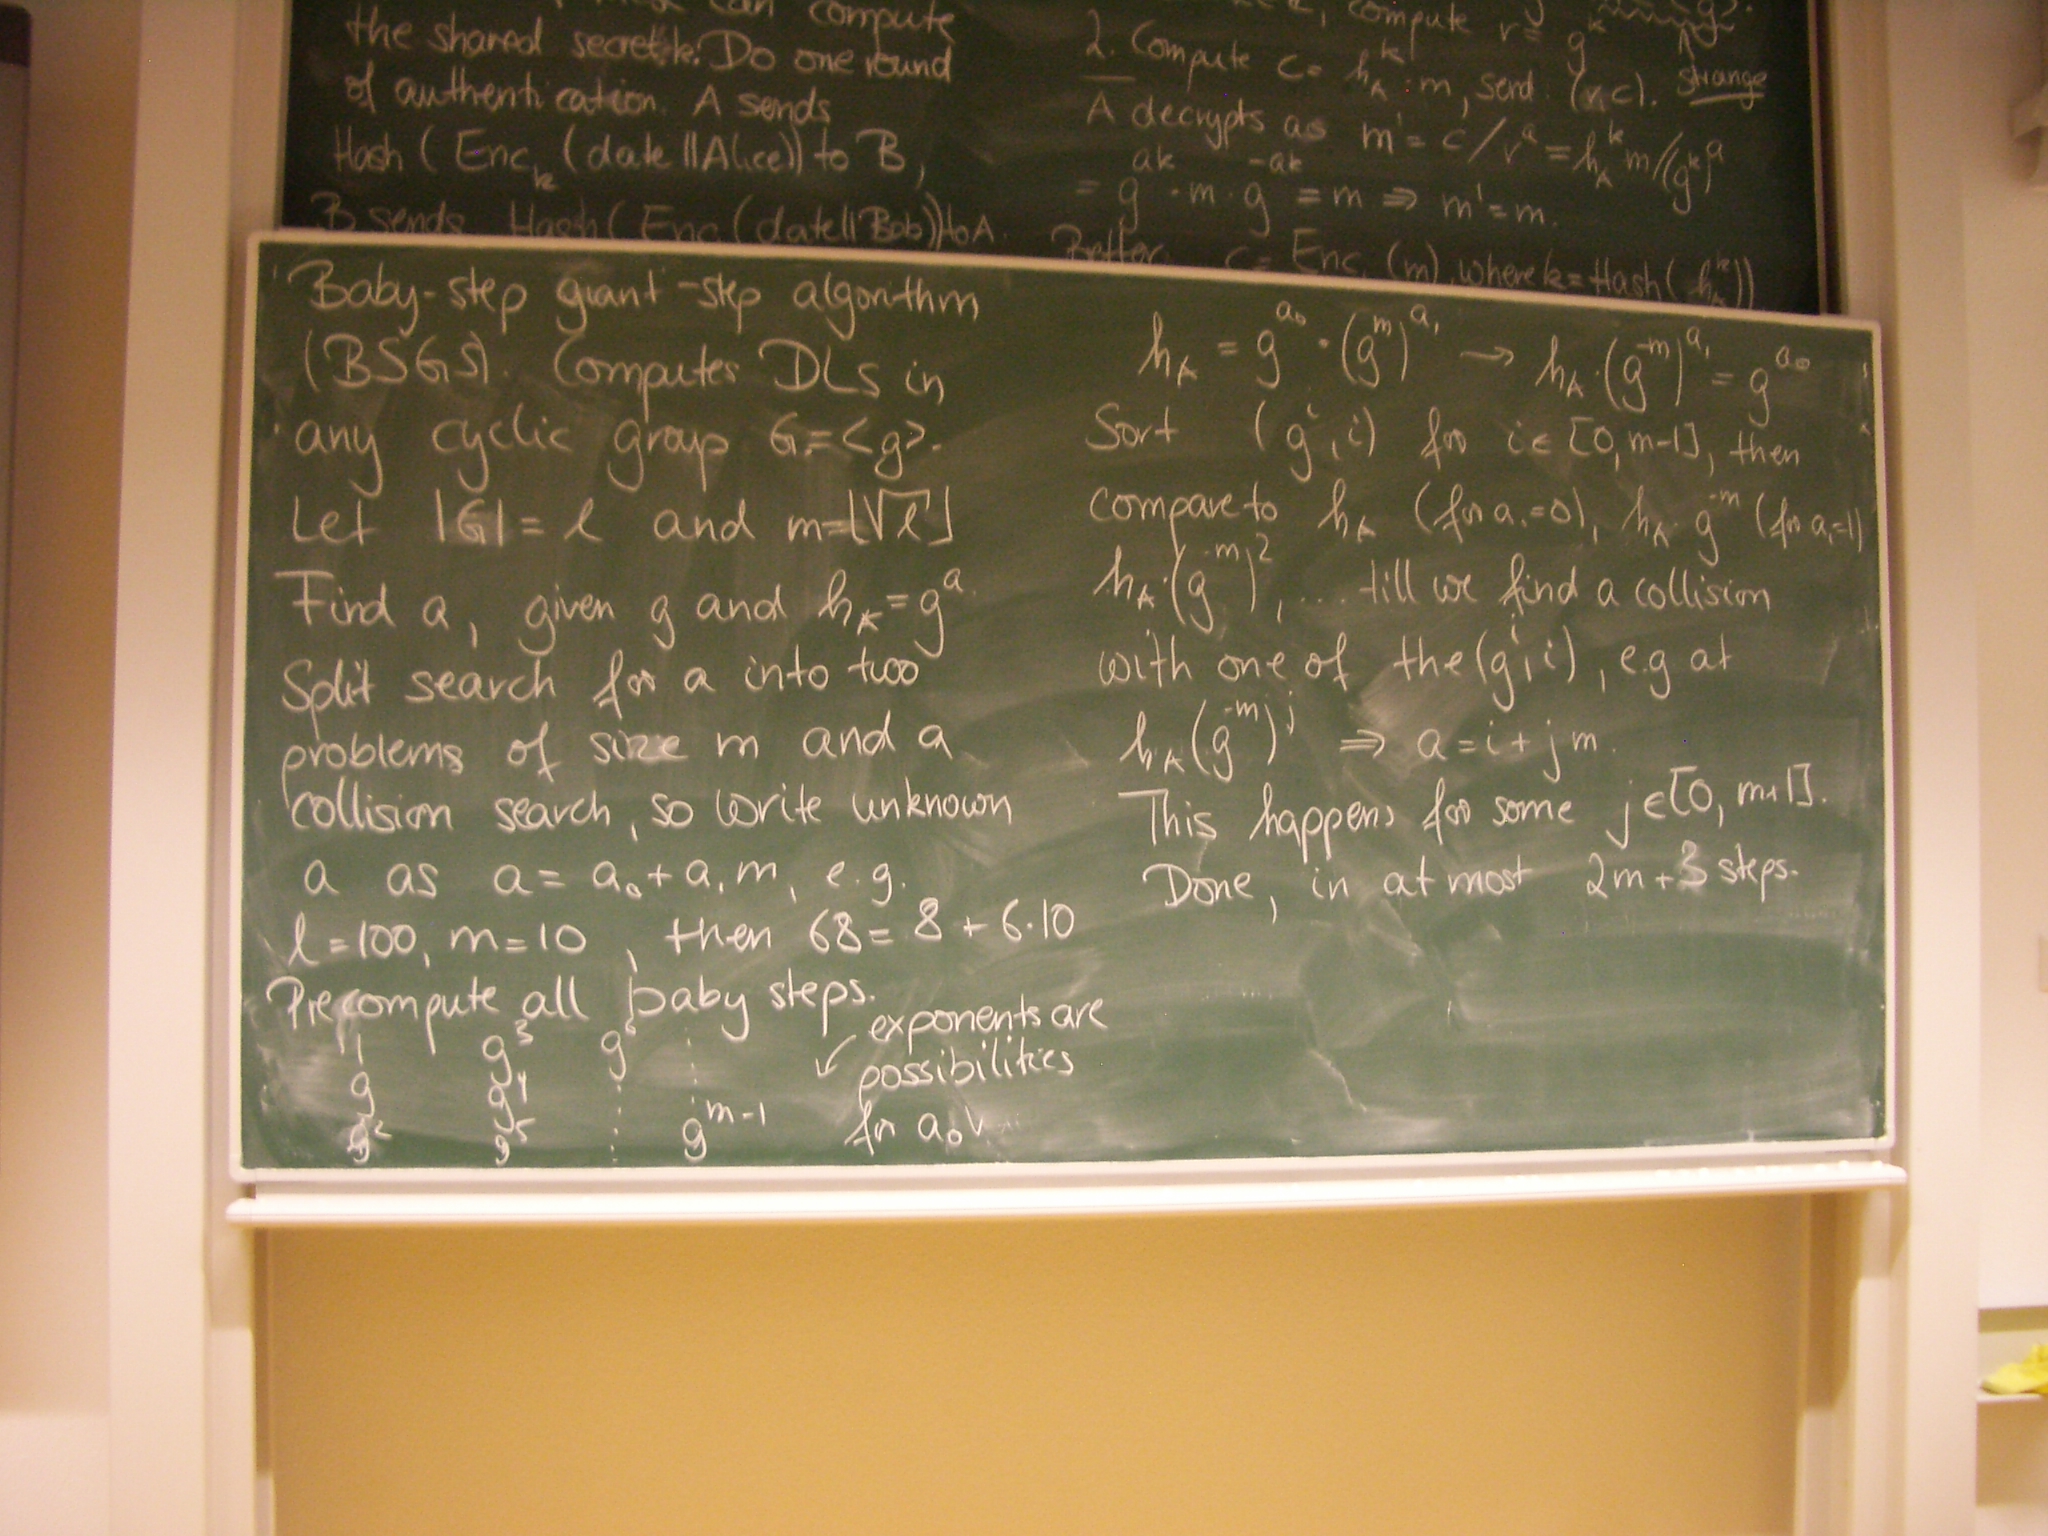 can compute
the shared secret k. Do one round
of authentication. A sends
Hash (Enc_k (date || Alice)) to B,
B sends Hash (Enc (date || Bob)) to A.
compute r = g^k
2. Compute c = h_A^k · m, send (r, c). strange
A decrypts as m' = c / r^a = h_A^k m / (g^k)^a
= g^ak · m · g^-ak = m ⇒ m' = m.
Better c = Enc_k (m), where k = Hash (h_A^k))
Baby-step giant-step algorithm
(BSGS). Computes DLs in
any cyclic group G = <g>.
Let |G| = l and m = ⌊√l⌋
Find a, given g and h_A = g^a.
Split search for a into two
problems of size m and a
collision search, so write unknown
a as a = a_0 + a_1 m, e.g.
l = 100, m = 10, then 68 = 8 + 6·10
Precompute all baby steps.
1 g^3 g^6 ⋮ ↙ exponents are
g g^4 ⋮ ⋮ possibilities
g^2 g^5 ⋮ g^m-1 for a_0
h_A = g^a_0 · (g^m)^a_1 → h_A · (g^-m)^a_1 = g^a_0
Sort (g^i, i) for i ∈ [0, m-1], then
compare to h_A (for a_1 = 0), h_A · g^-m (for a_1 = 1)
h_A · (g^-m)^2, ... till we find a collision
with one of the (g^i, i), e.g at
h_A (g^-m)^j ⇒ a = i + j m.
This happens for some j ∈ [0, m+1].
Done, in at most 2m + 3 steps.